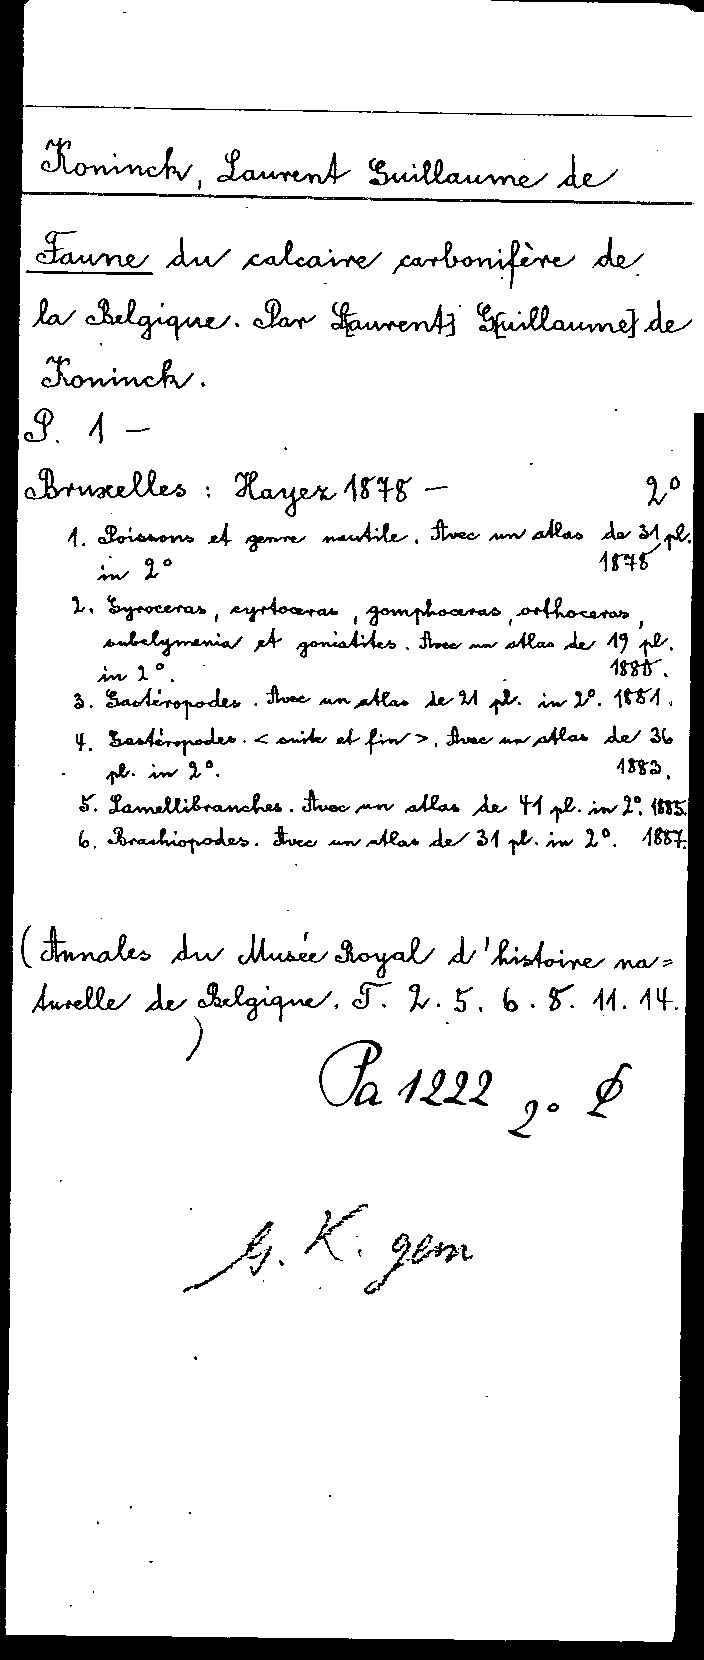 Koninck, Laurent Guillaume de
Faune du calcaire carbonifère de
la Belgique. Par L[aurent] G[uillaume] de
Koninck.
P. 1 —
Bruxelles : Hayez 1878 — 2°
1. Poissons et genre nautile. Avec un atlas de 31 pl.
in 2° 1878
2. Gyroceras, cyrtoceras, gomphoceras, orthoceras,
subclymenia et goniatites. Avec un atlas de 19 pl.
in 2°. 1880.
3. Gastéropodes. Avec un atlas de 21 pl. in 2°. 1881.
4. Gastéropodes. < suite et fin >. Avec un atlas de 36
pl. in 2°. 1883.
5. Lamellibranches. Avec un atlas de 41 pl. in 2°. 1885.
6. Brachiopodes. Avec un atlas de 31 pl. in 2°. 1887.
(Annales du Musée Royal d'histoire na=
turelle de Belgique. T. 2. 5. 6. 8. 11. 14.
)
Pa 1222 2°
G. K. gem